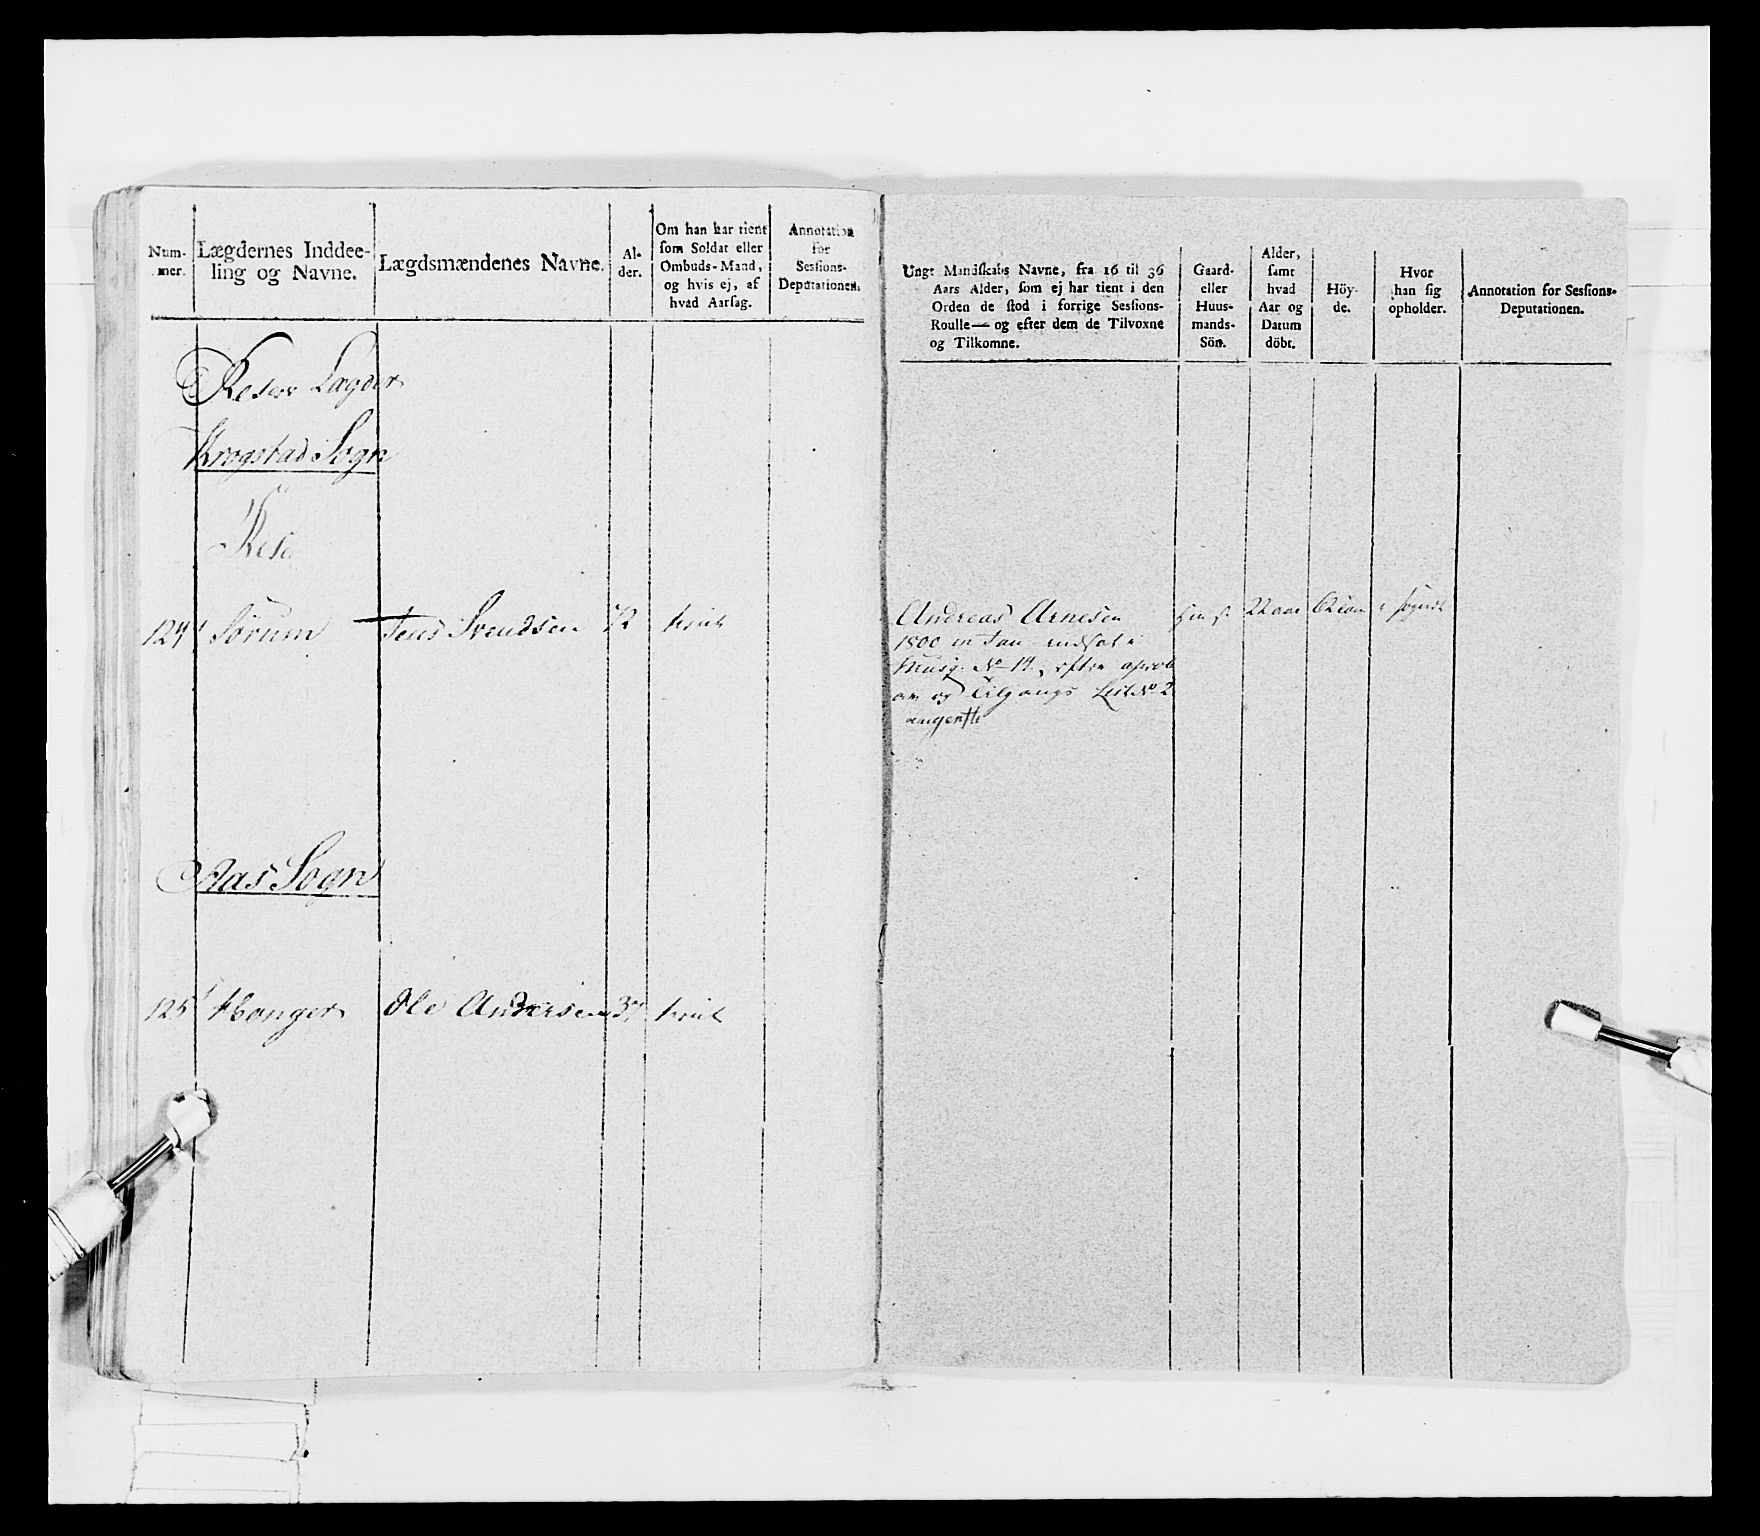 Num-
mer.
Lægdernes Inddee-
ling og Navne.
Lægdsmændenes Navne.
Al-
der.
Om han har tient
som Soldat eller
Ombuds-Mand,
og hvis ej, af
hvad Aarsag.
Annotation
for
Sessions-
Deputationen.
Reserv Lægder
Krogstad Sogn
Rese
124 Sørum Jens Svendsen 72
Aas Sogn
125 Hanger Ole Andersen 37
Ungt Mandskabs Navne, fra 16 til 36
Aars Alder, som ej har tient i den
Orden de stod i forrige Sessions-
Roulle — og efter dem de Tilvoxne
og Tilkomne.
Gaard-
eller
Huus-
mands-
Sön.
Alder,
samt
hvad
Aar og
Datum
döbt.
Höy-
de.
Hvor
han sig
opholder.
Annotation for Sessions-
Deputationen.
Andreas Arnesen 22 aar 62 i Sognet
1800 indsat i
Musq. No 14, efter
og Tilgangs List No 2